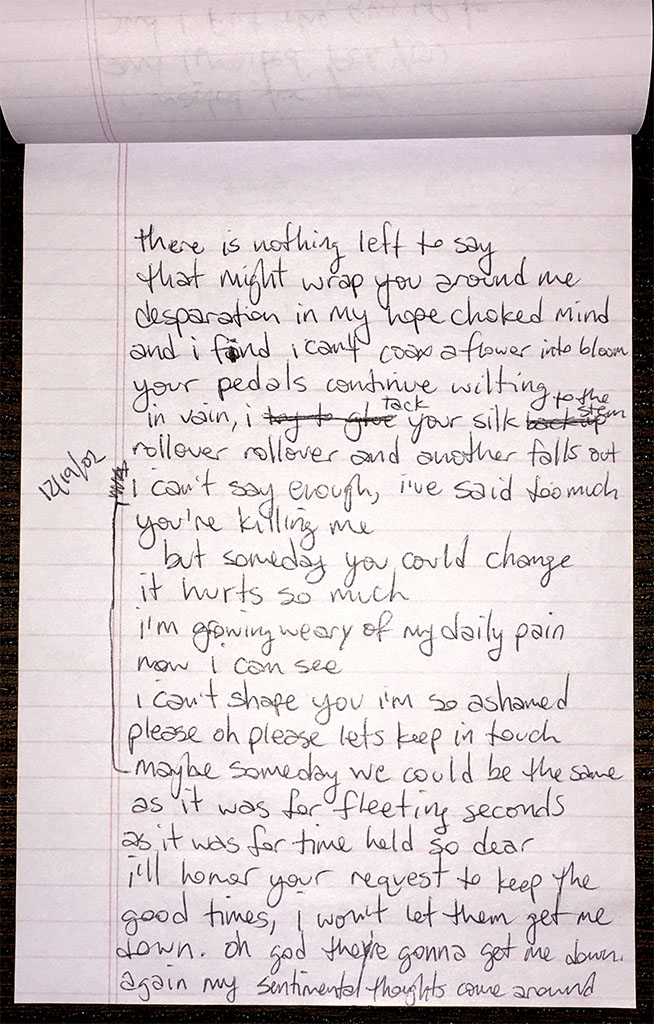 there is nothing left to say
that might wrap you around me
desparation in my hope choked mind
and i find i can't coax a flower into bloom
your pedals continue wilting
in vain, i try to glue tack your silk back up to the stem
rollover rollover and another falls out
12/19/02
i can't say enough, i've said too much
you're killing me
but someday you could change
it hurts so much
i'm growing weary of my daily pain
now i can see
i can't shape you i'm so ashamed
please oh please lets keep in touch
maybe someday we could be the same
as it was for fleeting seconds
as it was for time held so dear
i'll honor your request to keep the
good times, i won't let them get me
down. oh god they're gonna get me down.
again my sentimental thoughts come around